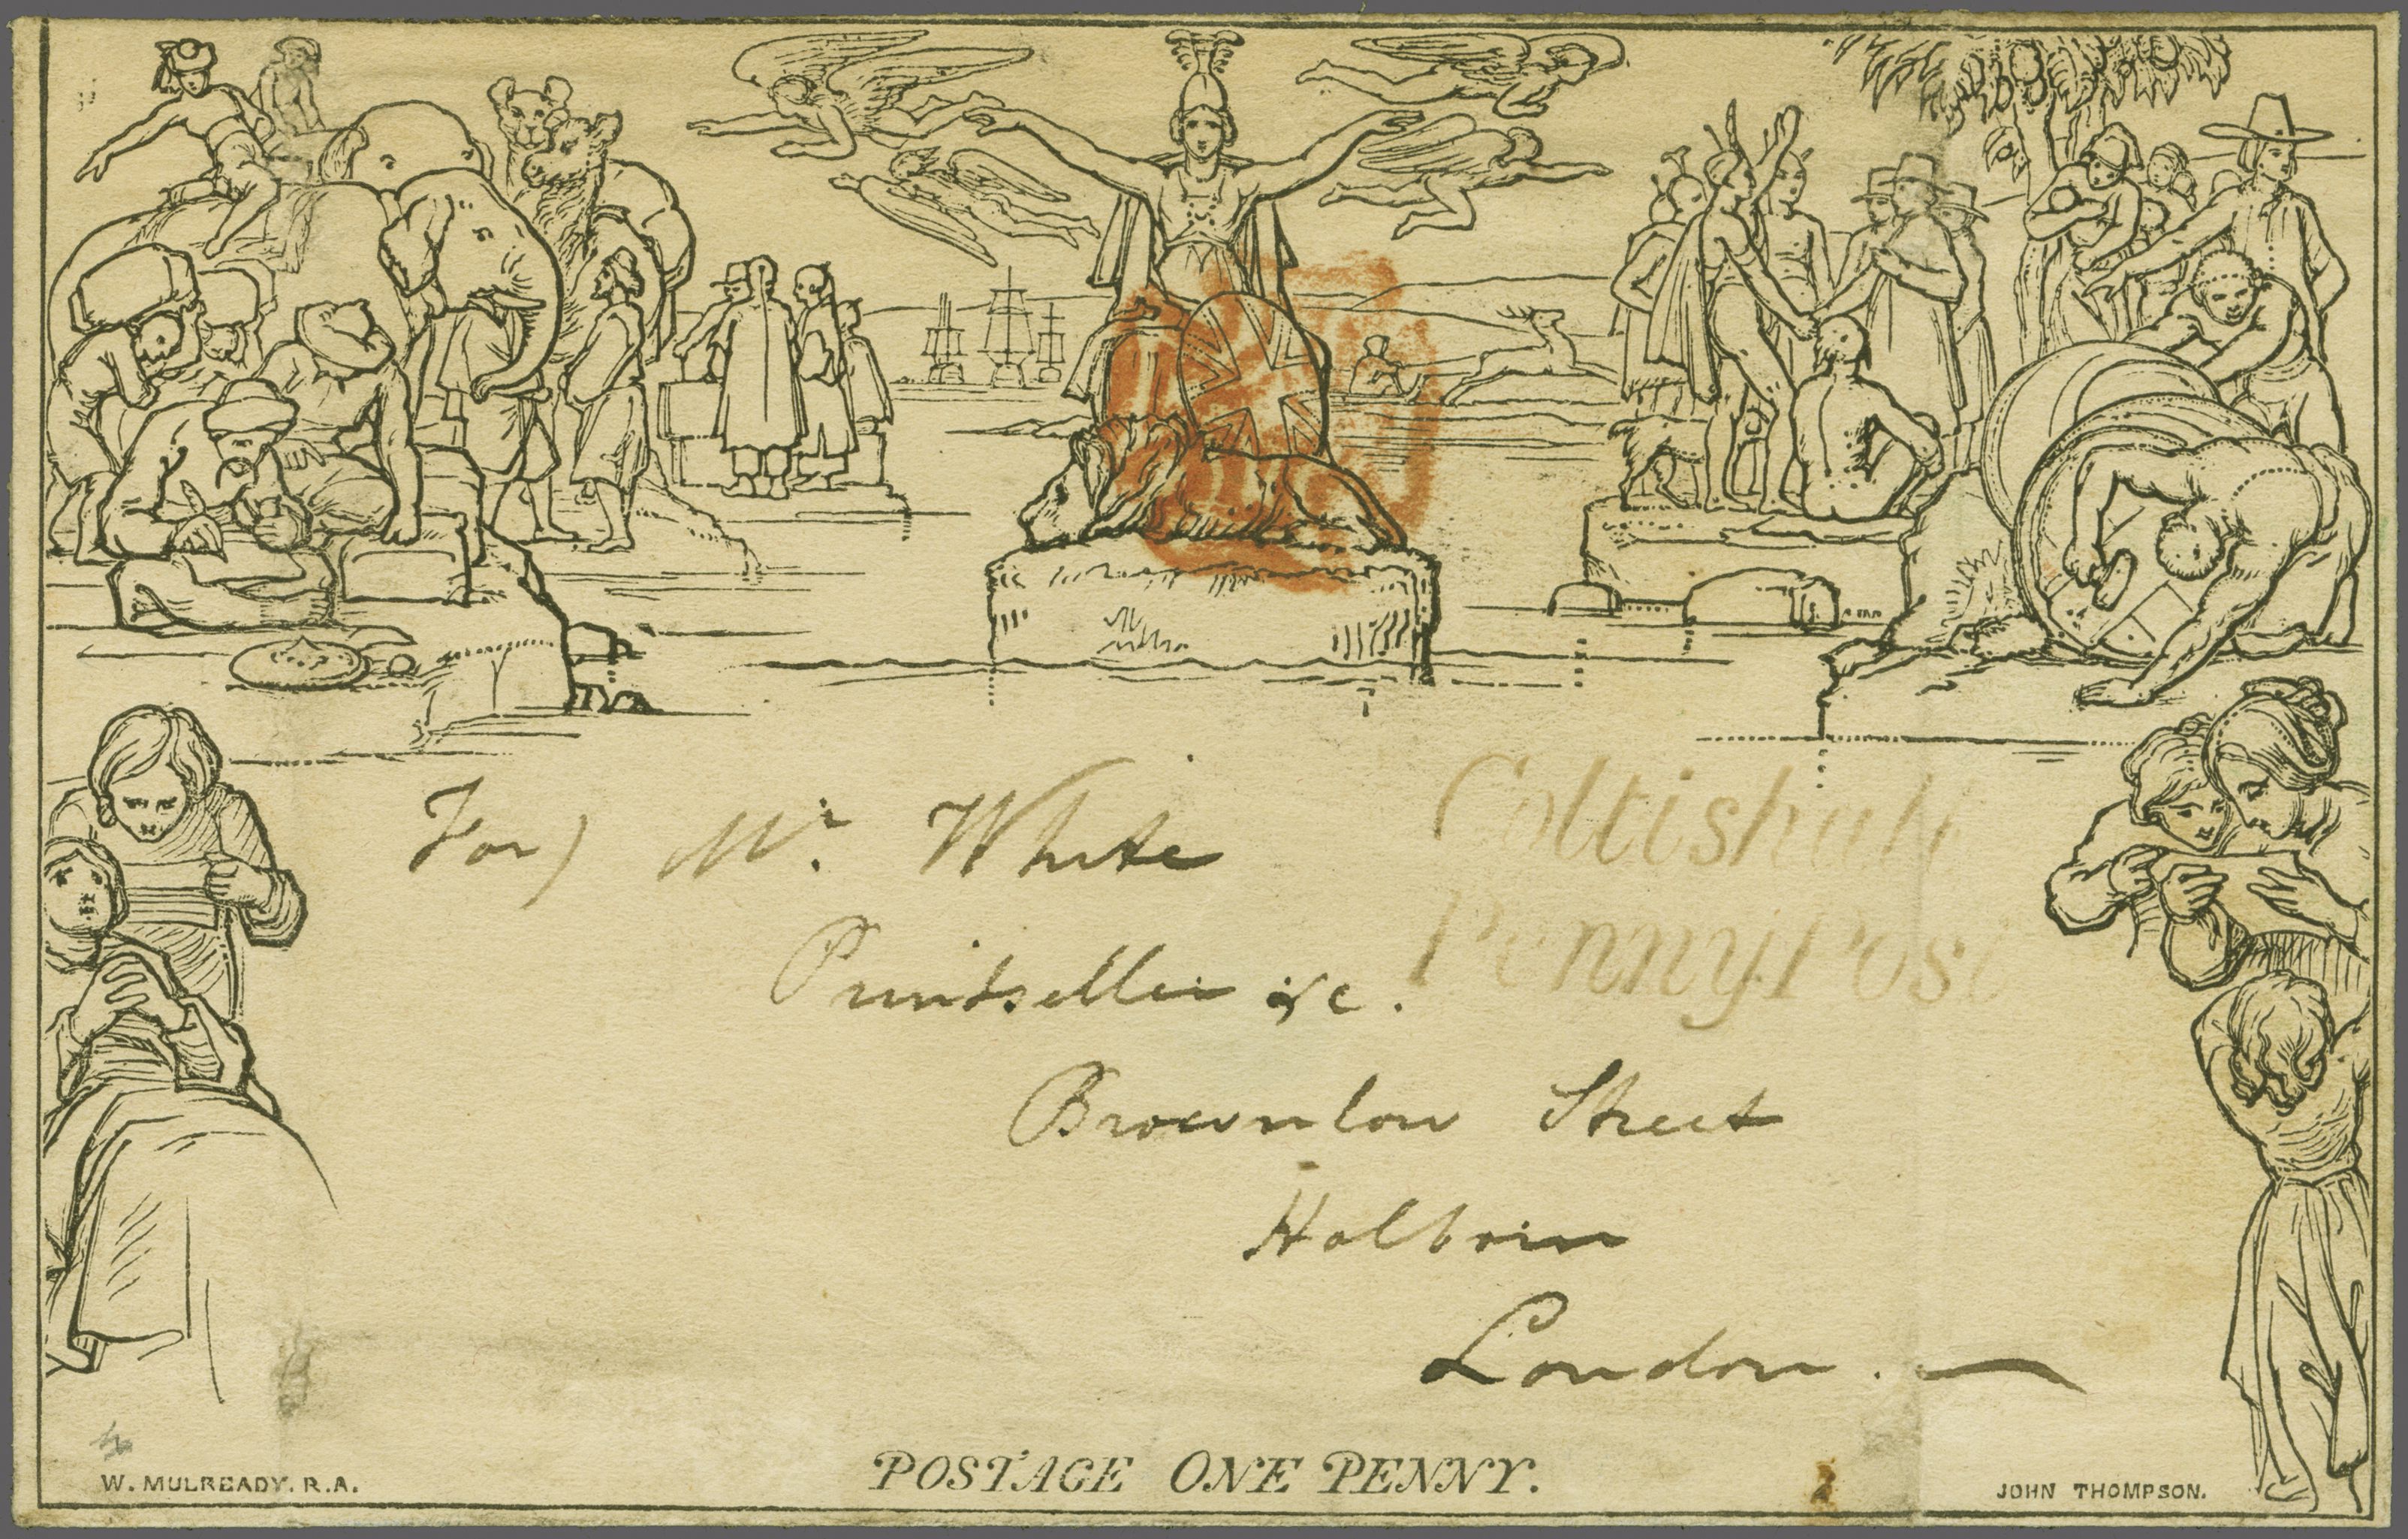 For) Mr. White
Coltishall
Penny Post
Printseller &c.
Brownlow Street
Holborn
London. —
POSTAGE ONE PENNY.
W. MULREADY. R.A.
JOHN THOMPSON.